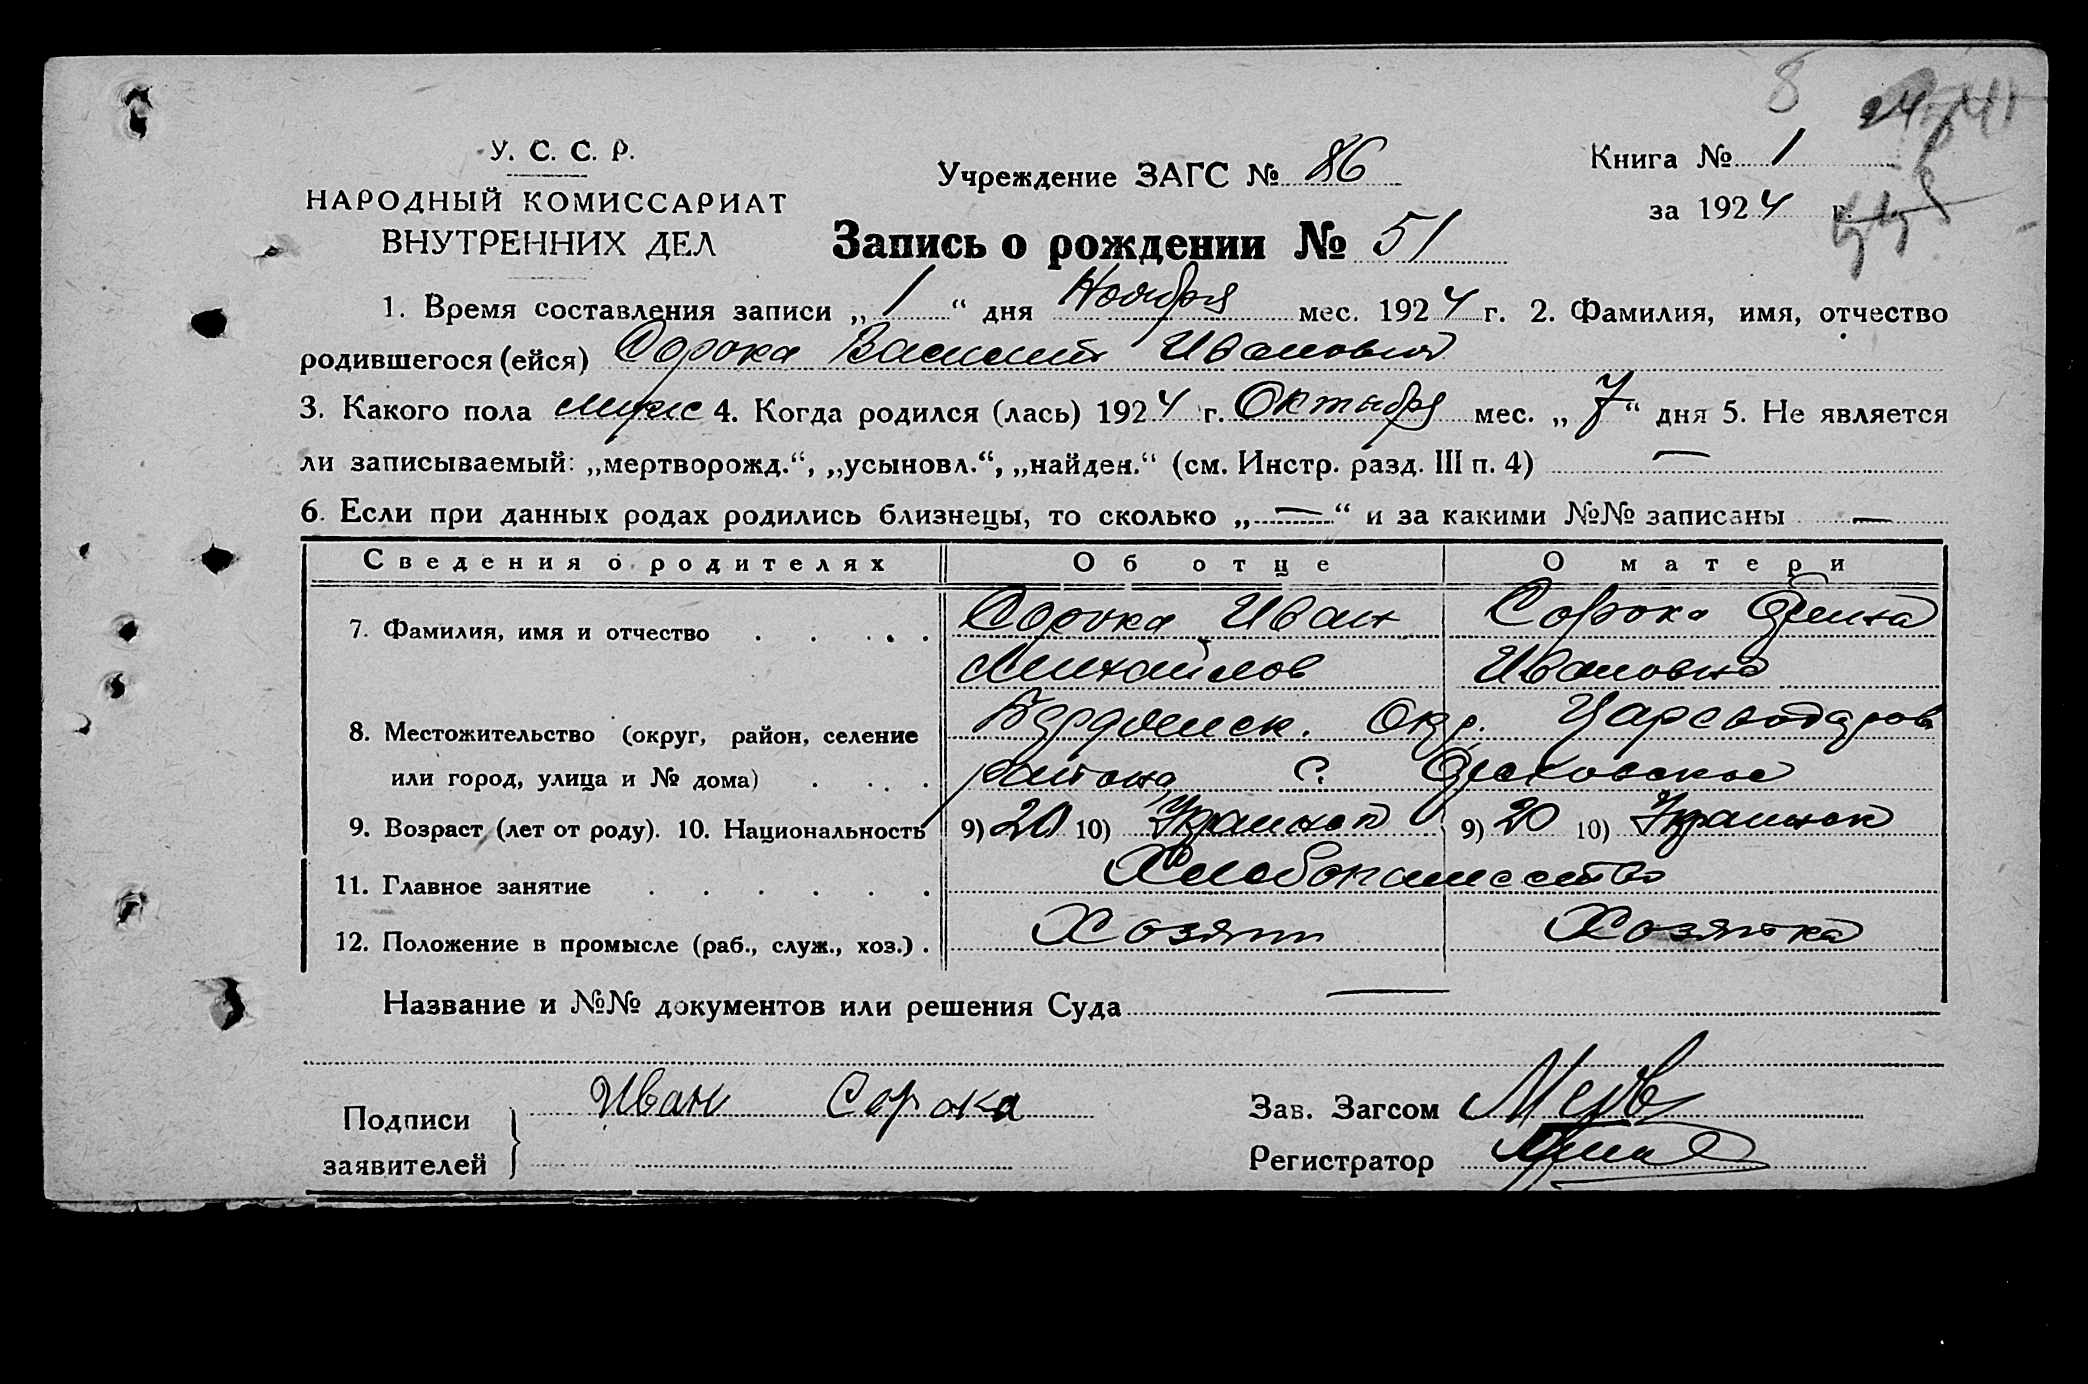 8
У. С. С. Р.
НАРОДНЫЙ КОМИССАРИАТ
ВНУТРЕННИХ ДЕЛ
Учреждение ЗАГС № 86
Книга № 1
за 1924 г.
Запись о рождении № 51
1. Время составления записи „1“ дня Ноября мес. 1924 г. 2. Фамилия, имя, отчество
родившегося (ейся) Сорока Василий Иванович
3. Какого пола мужс 4. Когда родился (лась) 1924 г. Октября мес. „7“ дня 5. Не является
ли записываемый: „мертворожд.“, „усыновл.“, „найден.“ (см. Инстр. разд. III п. 4) —
6. Если при данных родах родились близнецы, то сколько „—“ и за какими №№ записаны —
Сведения о родителях Об отце О матери
7. Фамилия, имя и отчество Сорока Иван Сорока
Михайлов Ивановна
8. Местожительство (округ, район, селение Бердянск. Окр.
или город, улица и № дома) района С.
9. Возраст (лет от роду). 10. Национальность 9) 20 10) Украинск 9) 20 10) Украинск
11. Главное занятие Хлебопашество
12. Положение в промысле (раб., служ., хоз.) Хозяин Хозяйка
Название и №№ документов или решения Суда —
Подписи
заявителей } Иван Сорока
Зав. Загсом
Регистратор